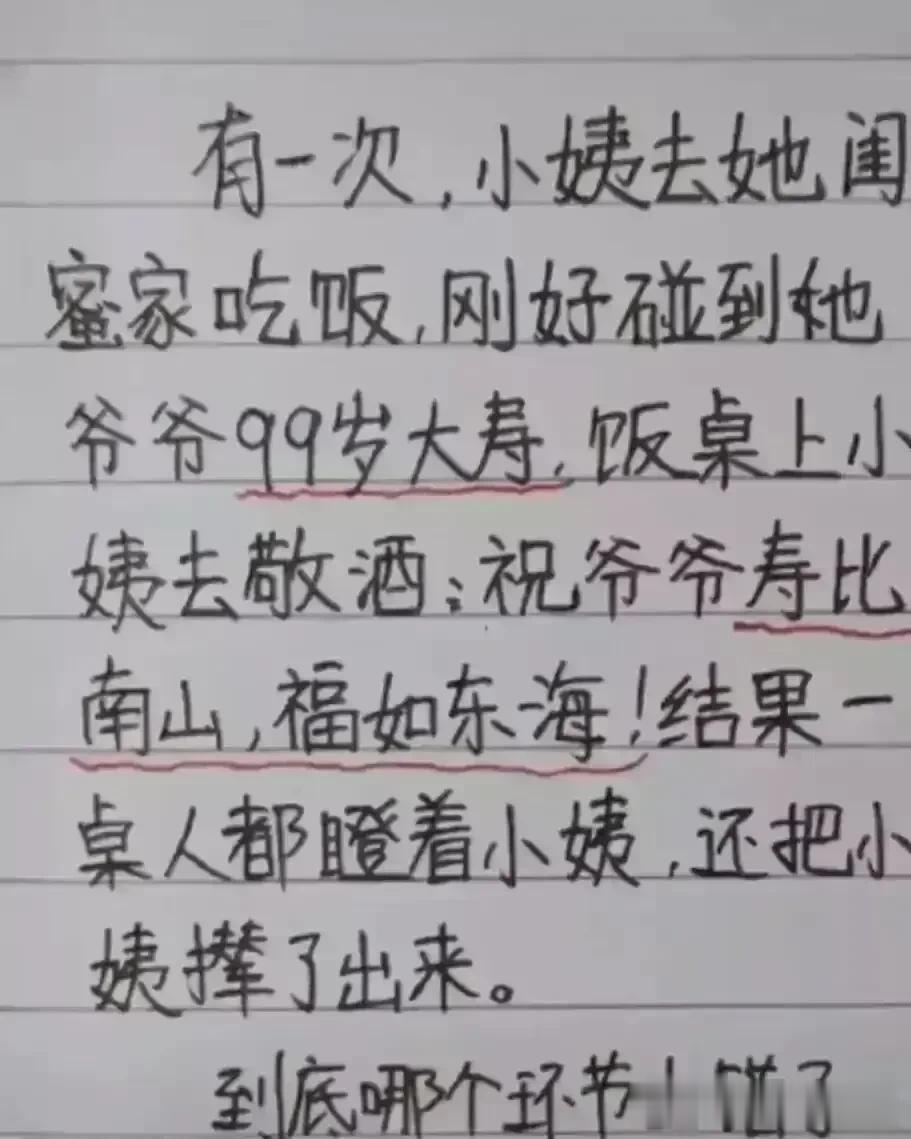 有一次,小姨去她闺
蜜家吃饭,刚好碰到她
爷爷99岁大寿,饭桌上小
姨去敬酒:祝爷爷寿比
南山,福如东海!结果一
桌人都瞪着小姨,还把小
姨撵了出来。
到底哪个环节 错了